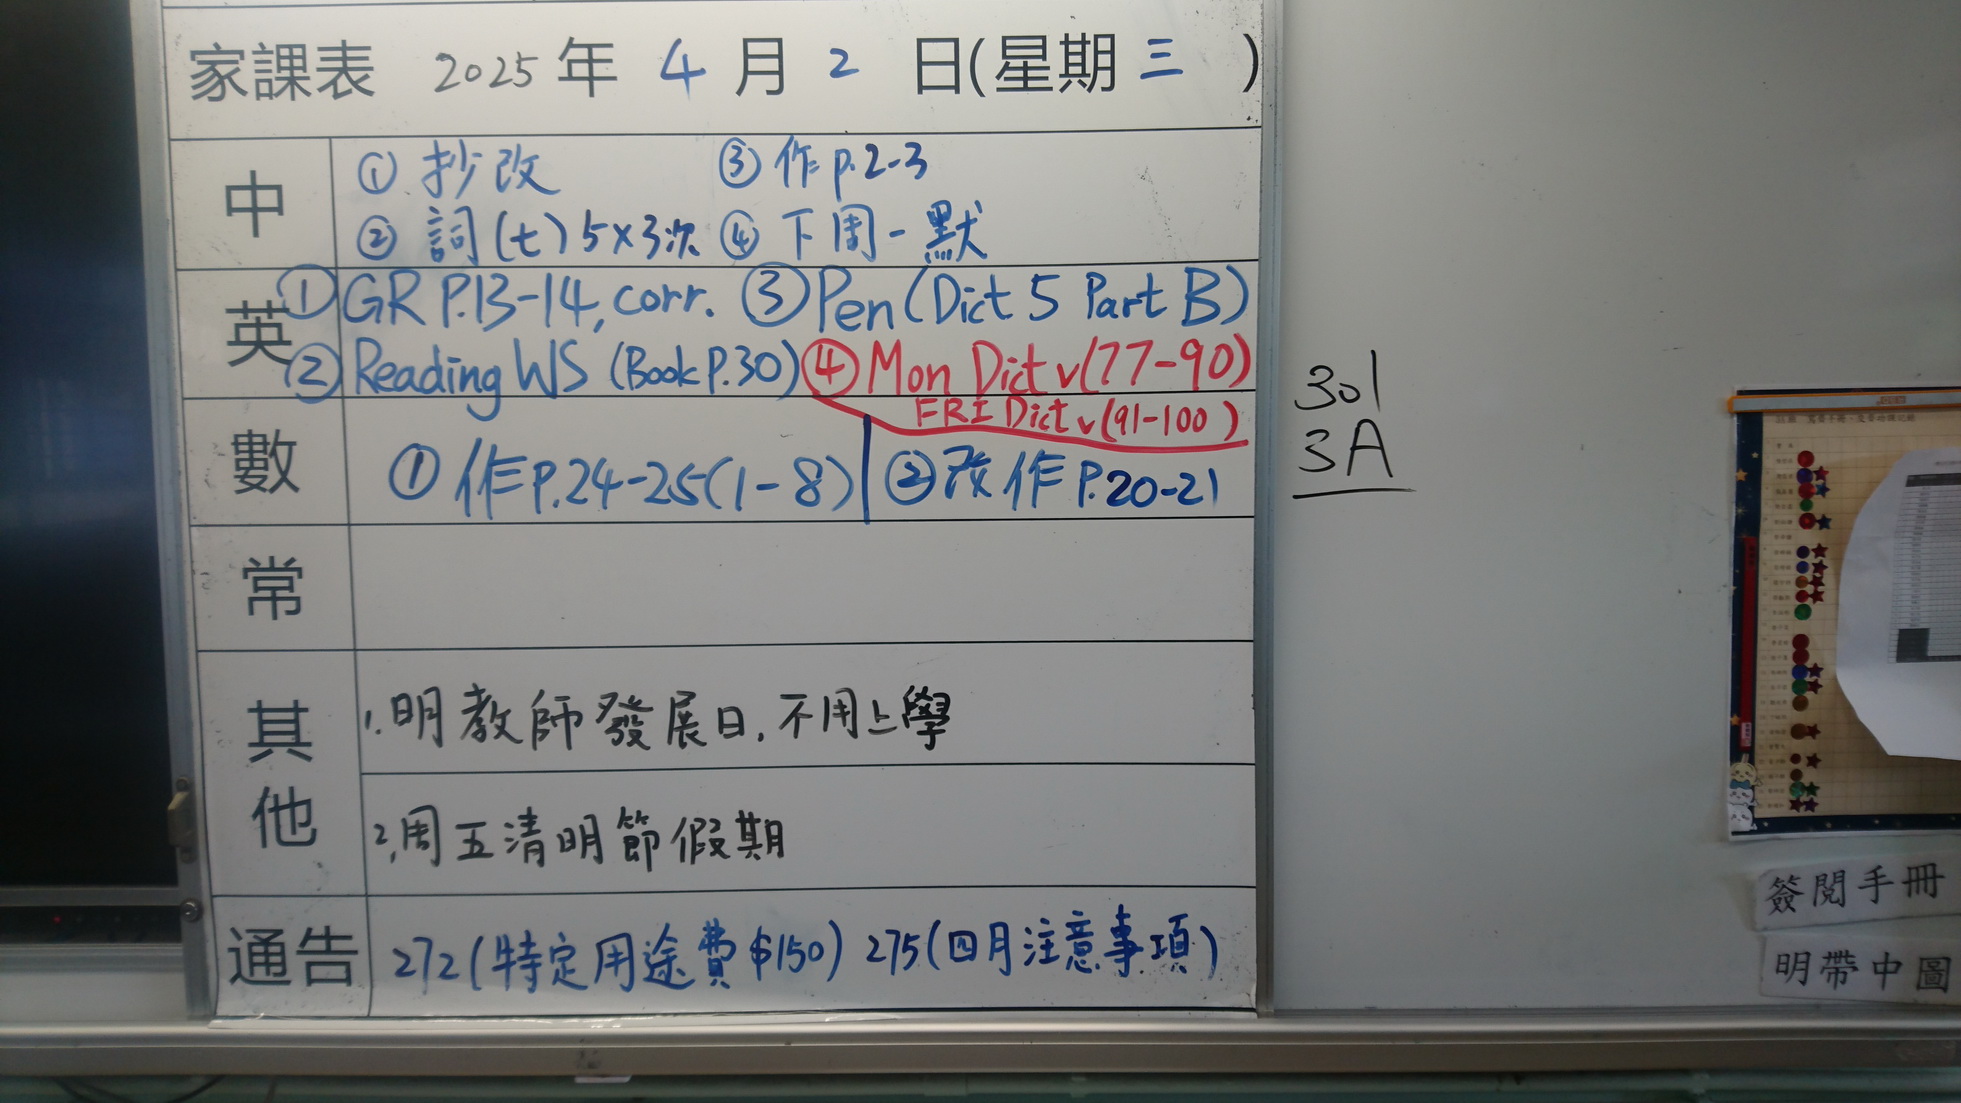 家課表 2025年 4月 2 日(星期三 )
中
① 抄改 ③ 作p.2-3
② 詞(七)5×3次 ④ 下周一默
英
① GR P.13-14, corr. ③ Pen (Dict 5 Part B)
② Reading WS (Book P.30) ④ Mon Dict v(77-90)
FRI Dict v(91-100)
數
① 作P.24-25(1-8) ② 改作P.20-21
常
其他
1. 明教師發展日, 不用上學
2, 周五清明節假期
通告
272(特定用途費$150) 275(四月注意事項)
301
3A
簽閱手冊
明帶中圖